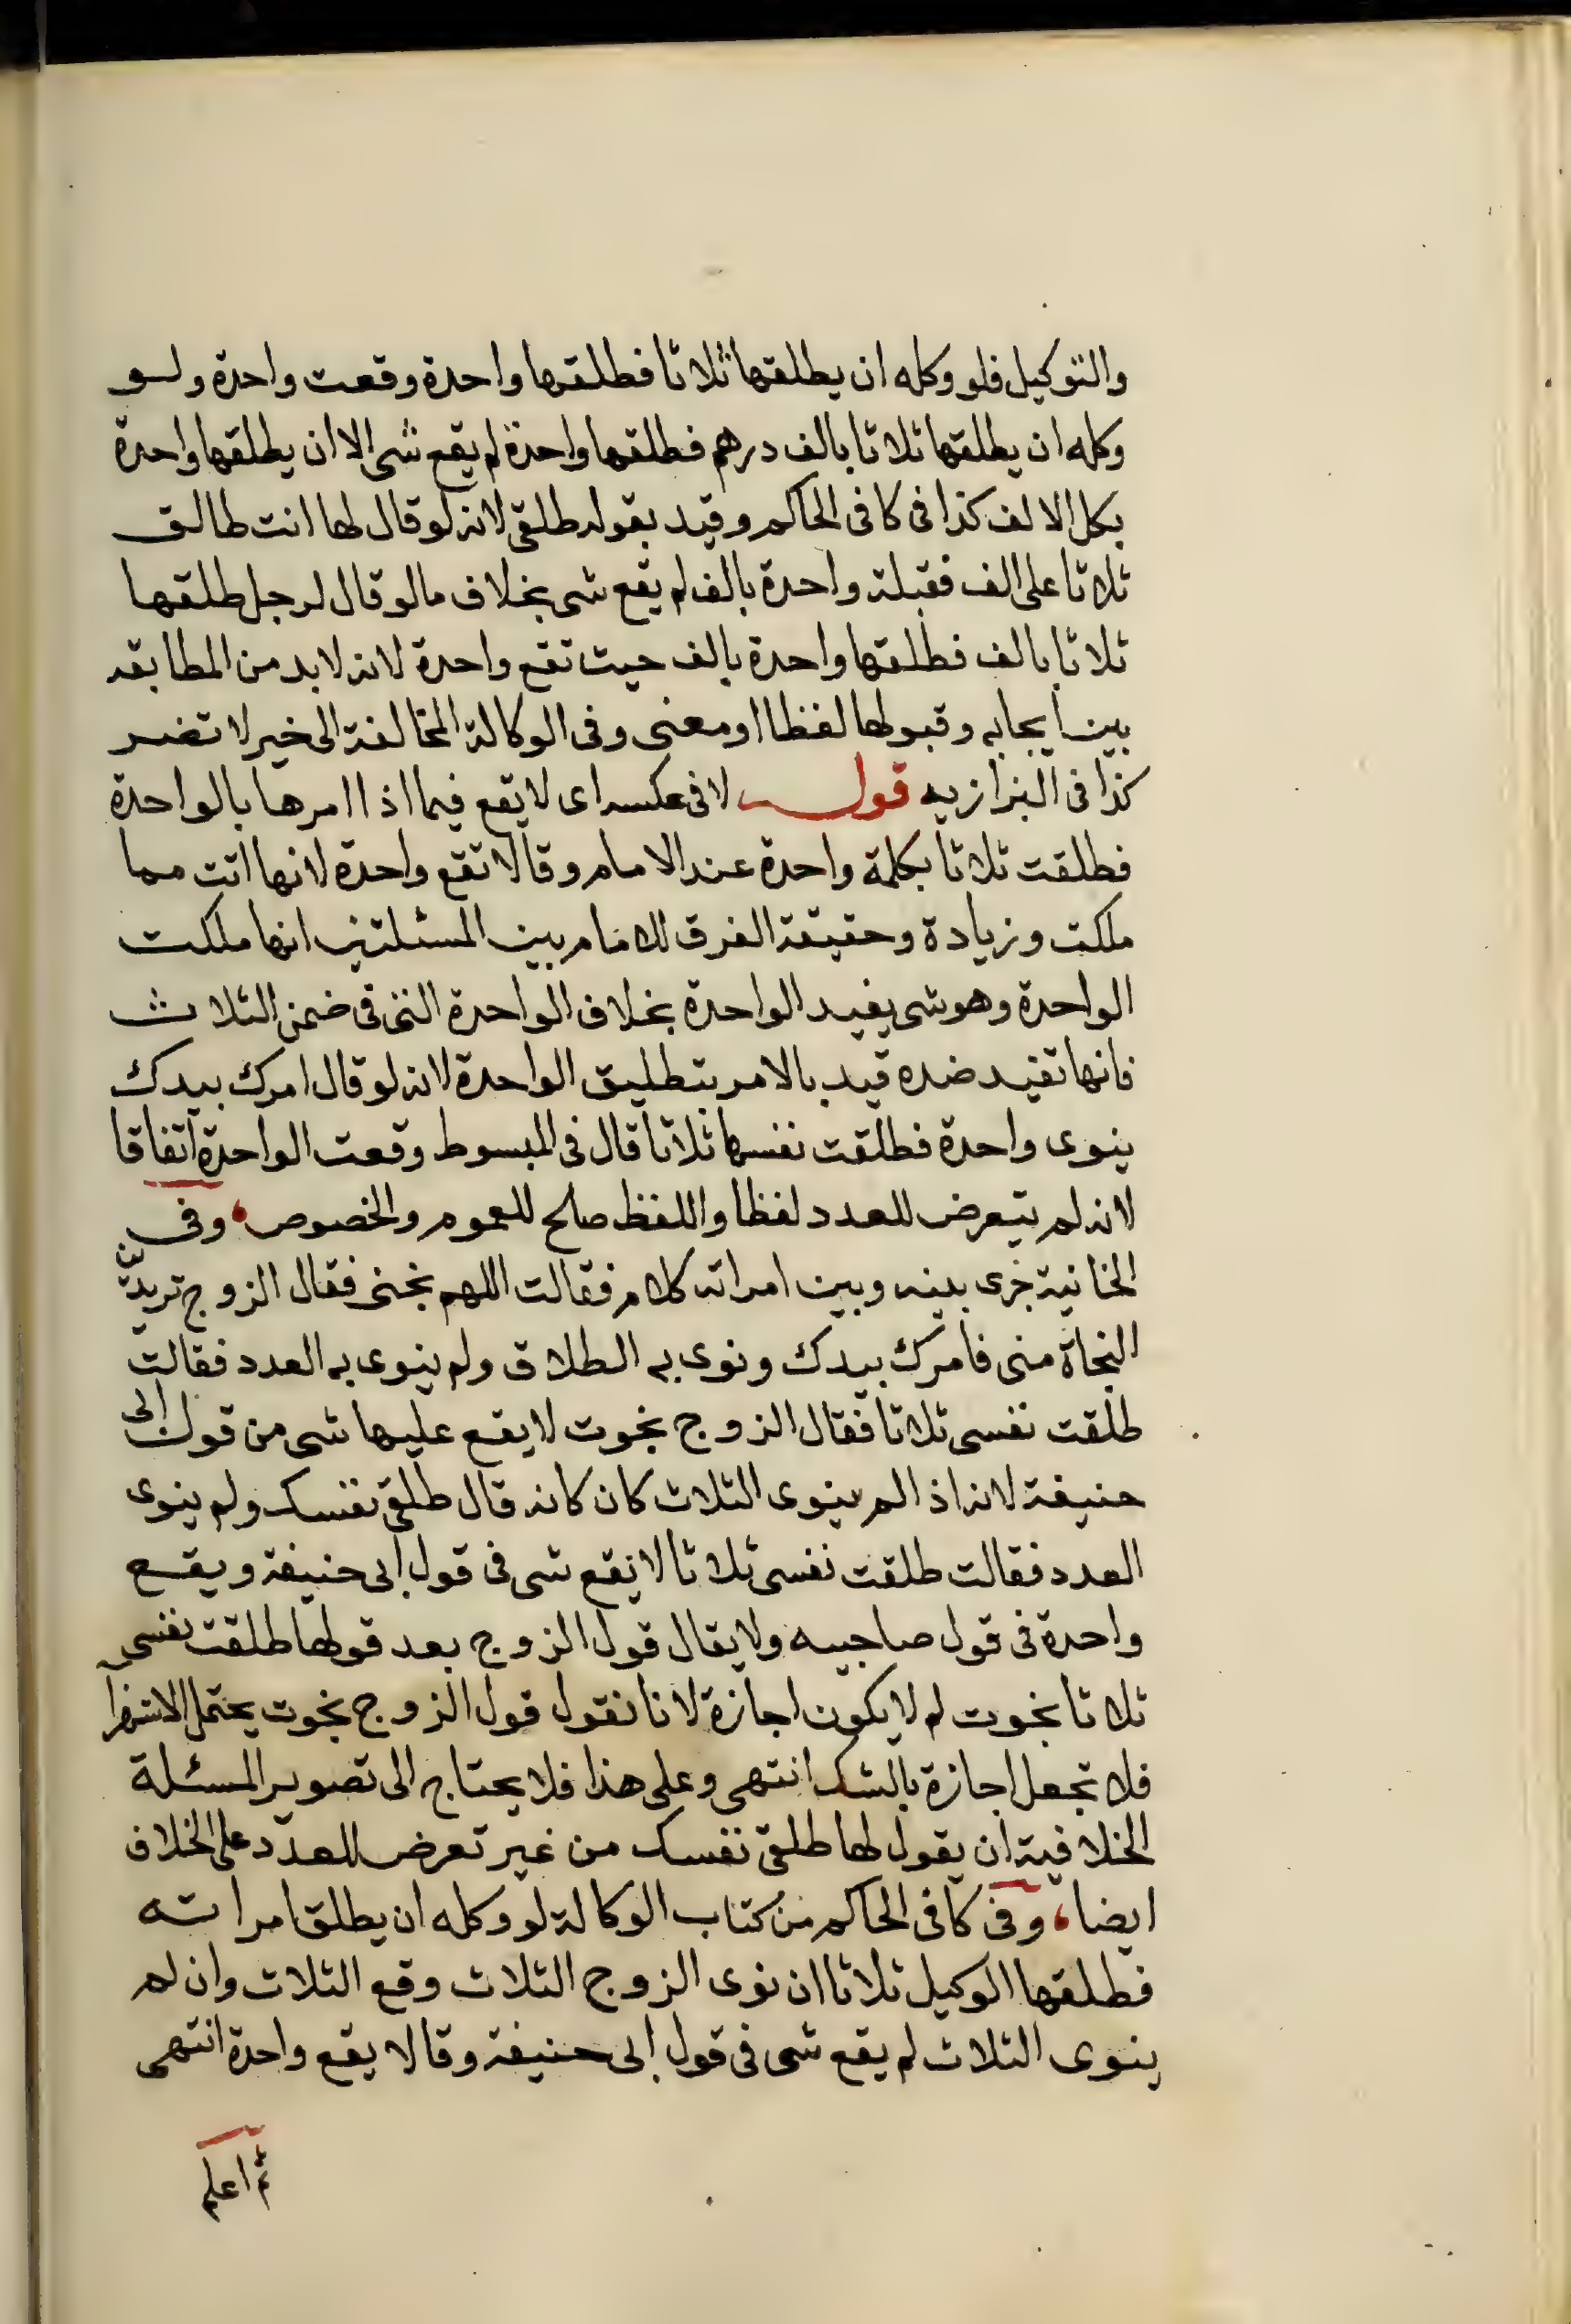 والتوكيل فلو وكله ان يطلقها ثلاثا فطلقها واحدة وقعت واحدة ولو
وكله ان يطلقها ثلاثا بالف درهم فطلقها واحدة لم يقع شى الا ان يطلقها واحدة
بكل الالف كذا فى كافى الحاكم وقيد بقوله طلقى لانه لو قال لها انت طالق
ثلاثا على الف فقبلة واحدة بالف لم يقع شى بخلاف مالو قال لرجل طلقها
ثلاثا بالف فطلقها واحدة بالف حيث تقع واحدة لانه لابد من المطابقه
بين ايجابه وقبولها لفظا او معنى وفى الوكالة المخالفة الى خير لا تضر
كذا فى البزازيه قوله لا فى عكسه اى لا يقع فيما اذا امرها بالواحدة
فطلقت ثلاثا بكلمة واحدة عند الامام وقالا تقع واحدة لانها اتت مما
ملكت وزيادة وحقيقة الفرق للامام بين المسئلتين انها ملكت
الواحدة وهو شى يفيد الواحدة بخلاف الواحدة التى فى ضمن الثلاث
فانها تفيد ضده قيد بالامر بتطليق الواحدة لانه لو قال امرك بيدك
ينوى واحدة فطلقت نفسها ثلاثا قال فى المبسوط وقعت الواحدة اتفاقا
لانه لم يتعرض للعدد لفظا واللفظ صالح للعموم والخصوص، وفى
الخانية جرى بينه وبين امراته كلام فقالت اللهم نجنى فقال الزوج تريدين
النجاة منى فامرك بيدك ونوى به الطلاق ولم ينوى به العدد فقالت
طلقت نفسى ثلاثا فقال الزوج نجوت لا يقع عليها شى من قول ابى
حنيفة لانه اذا لم ينوى الثلاث كان كانه قال طلقى نفسك ولم ينوى
العدد فقالت طلقت نفسى ثلاثا لا يقع شى فى قول ابى حنيفة ويقع
واحدة فى قول صاحبيه ولا يقال قول الزوج بعد قولها طلقت نفسى
ثلاثا نجوت لم لا يكون اجازة لانا نقول قول الزوج نجوت يحتمل الاستهزآ
فلا تجعل اجازة بالشك انتهى وعلى هذا فلا يحتاج الى تصوير المسئلة
الخلافية ان يقول لها طلقى نفسك من غير تعرض للعدد على الخلاف
ايضا، وفى كافى الحاكم من كتاب الوكالة لو وكله ان يطلق امراته
فطلقها الوكيل ثلاثا ان نوى الزوج الثلاث وقع الثلاث وان لم
ينوى الثلاث لم يقع شى فى قول ابى حنيفة وقالا يقع واحدة انتهى
ثم اعلم